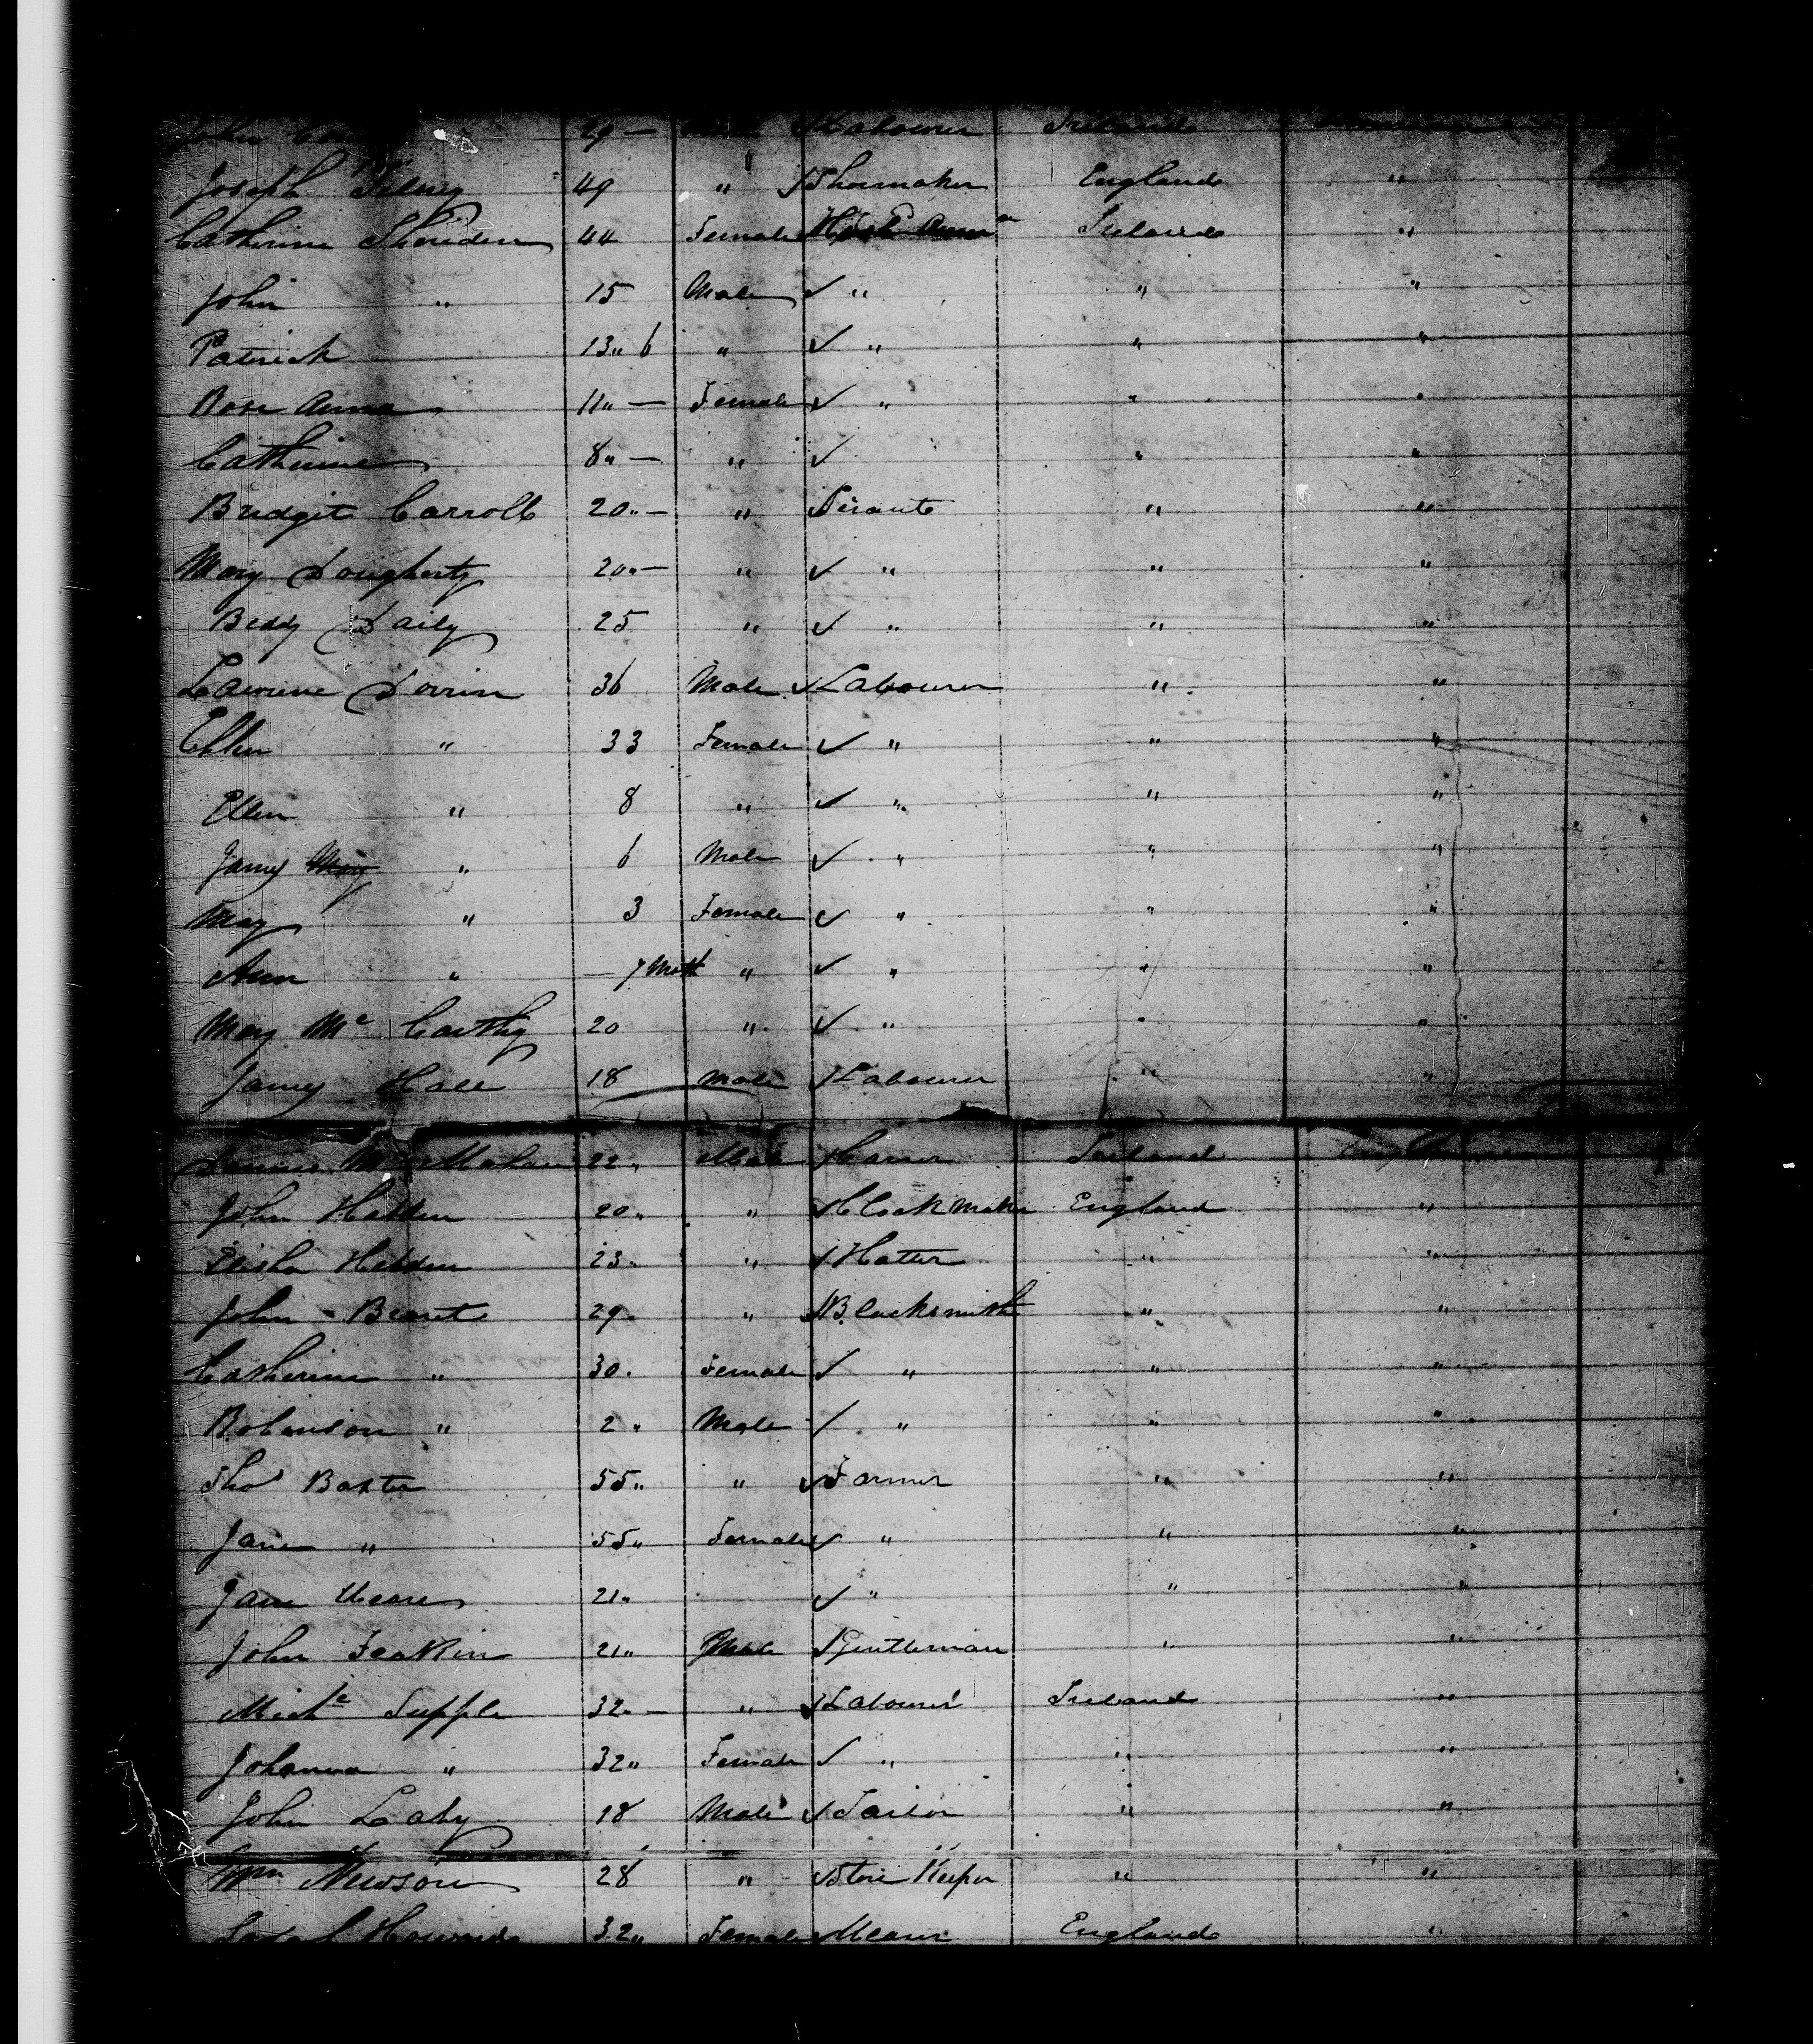 John 29 — Labourer Ireland
Joseph 49 " Shoemaker England "
Catherine Sheriden 44 Female Ireland "
John " 15 Male " " "
Patrick 13 " 6 " " " "
Rose Anna 11 " — Female " " "
Catherine 8 " — " " "
Bridgit Carroll 20 " — " Servant " "
Mary Dougherty 20 " — " " " "
Biddy Daily 25 " " " "
Lawrence Dorrin 36 Male Labourer " "
Ellen " 33 Female " " "
Ellen " 8 " " " "
James " 6 Male " " "
May " 3 Female " " "
Ann " — 7 Mth " " " "
Mary Mc Carthy 20 " " " "
James Hall 18 Male Labourer " "
Mc Mahon 22 " Male Ireland
John Hebden 20 " " Clock Maker England "
Elisha Hebden 23 " Hatter " "
John 29 " Blacksmith " "
Catherine " 30 Female " " "
Robinson " 2 " Male " " "
Thos Baxter 55 " " Farmer " "
Jane " 55 " Female " " "
Jane 21 " " " "
John 21 " Male Gentleman " "
Michl Supple 32 " — " Labourer Ireland "
Johanna " 32 " Female " " "
John Lahy 18 Male Tailor " "
Wm Newson 28 " Store Keeper " "
32 " Female England "